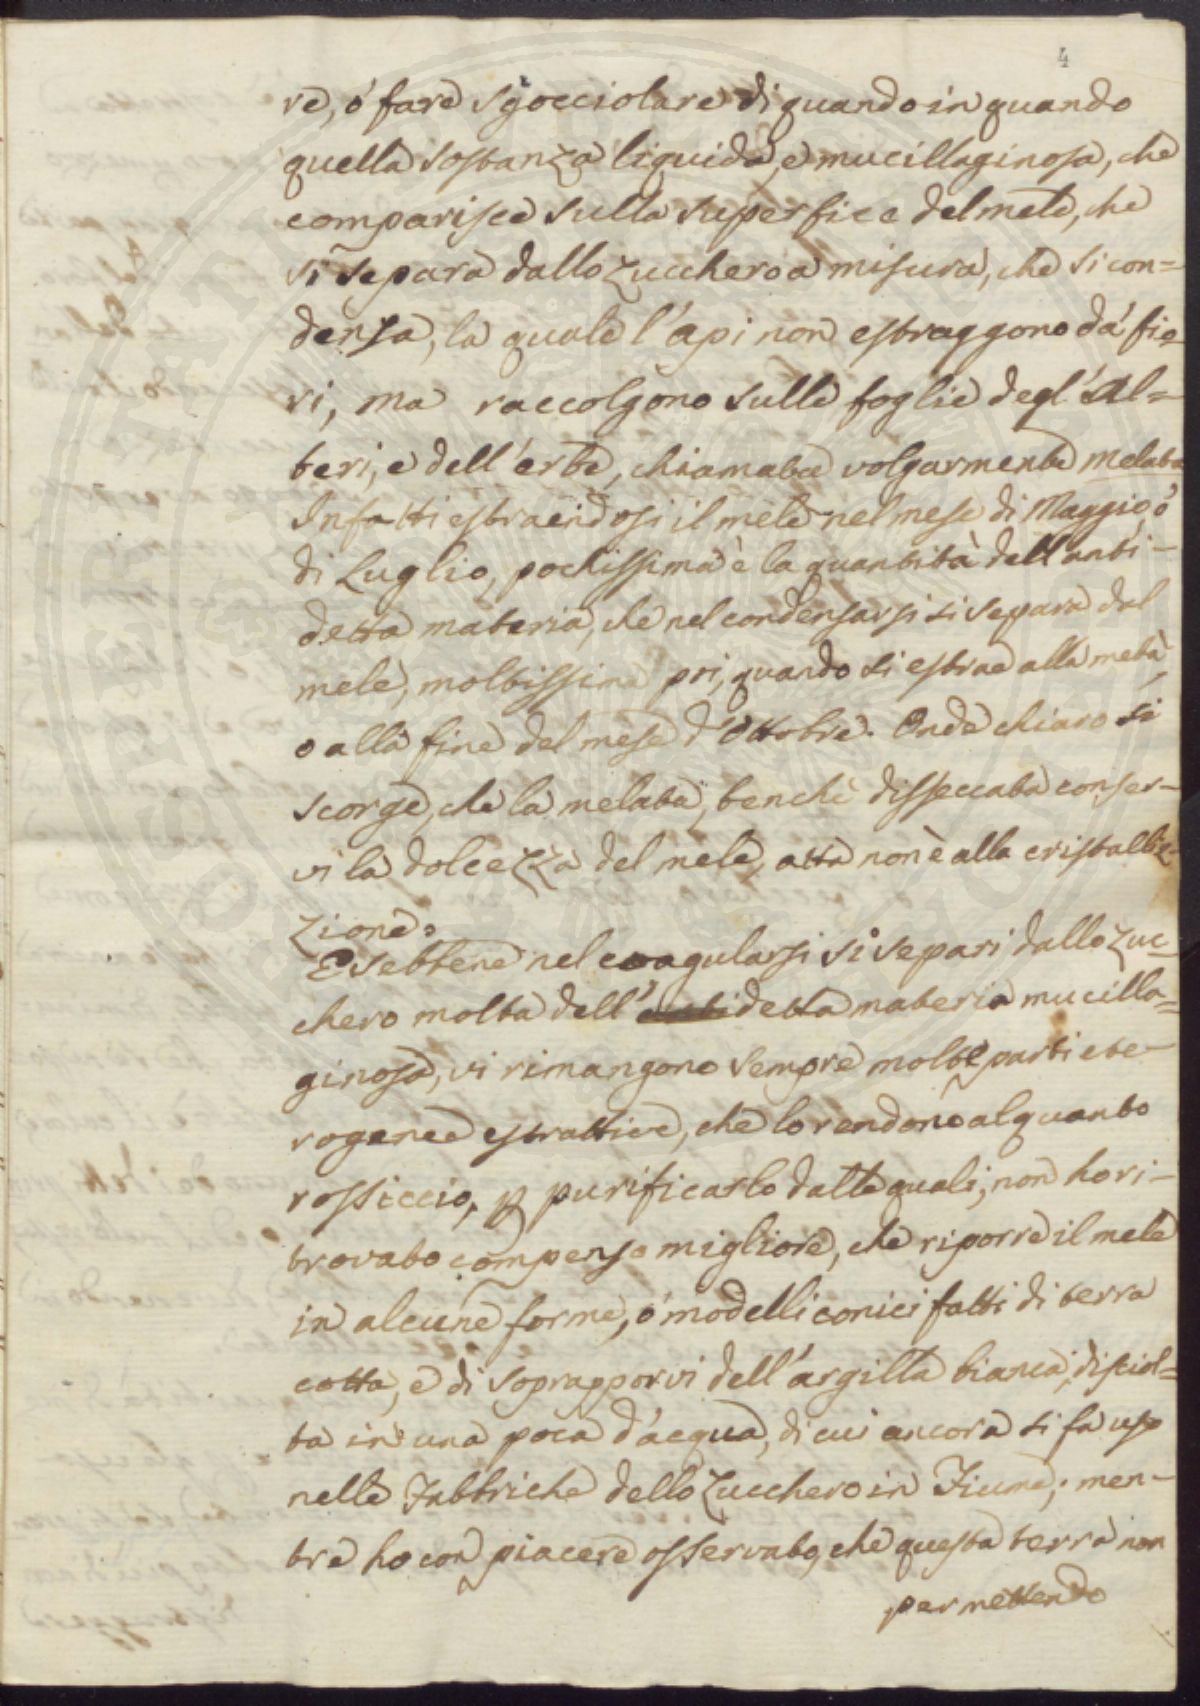 4
re, ó fare sgocciolare di quando in quando
quella sostanza liquida, e mucillaginosa, che
comparisce sulla superficie del mele, che
si separa dallo Zucchero a misura, che si con=
densa, la quale l'api non estraggono dá fio=
ri, ma raccolgono sulle foglie degl'Al=
beri, e dell'erbe, chiamata volgarmente melata
Infatti estraendosi il mele nel mese di Maggio ó
di Luglio, pochissima è la quantità dell'anti-
detta materia, che nel condensarsi si separa dal
mele, moltissima poi, quando si estrae alla metà,
o alla fine del mese d'Ottobre. Onde chiaro si
scorge, che la melata, benchè disseccata conser-
vi la dolcezza del mele, atta non è alla cristalliz-
zione.
E sebbene nel coagularsi si separi dallo Zuc-
chero molta dell'antidetta materia mucilla=
ginosa, vi rimangono sempre molte parti ete-
rogenee estrattive, che lo rendono alquanto
rossiccio, p purificarlo dalle quali, non ho ri-
trovato compenso migliore, che riporre il mele
in alcune forme, ó modelli conici fatti di terra
cotta, e di soprapporvi dell'argilla bianca, disciol=
ta in una poca d'acqua, di cui ancora si fa uso
nelle Fabbriche dello Zucchero in Fiume; men-
tre ho con piacere osservato, che questa terra non
permettendo